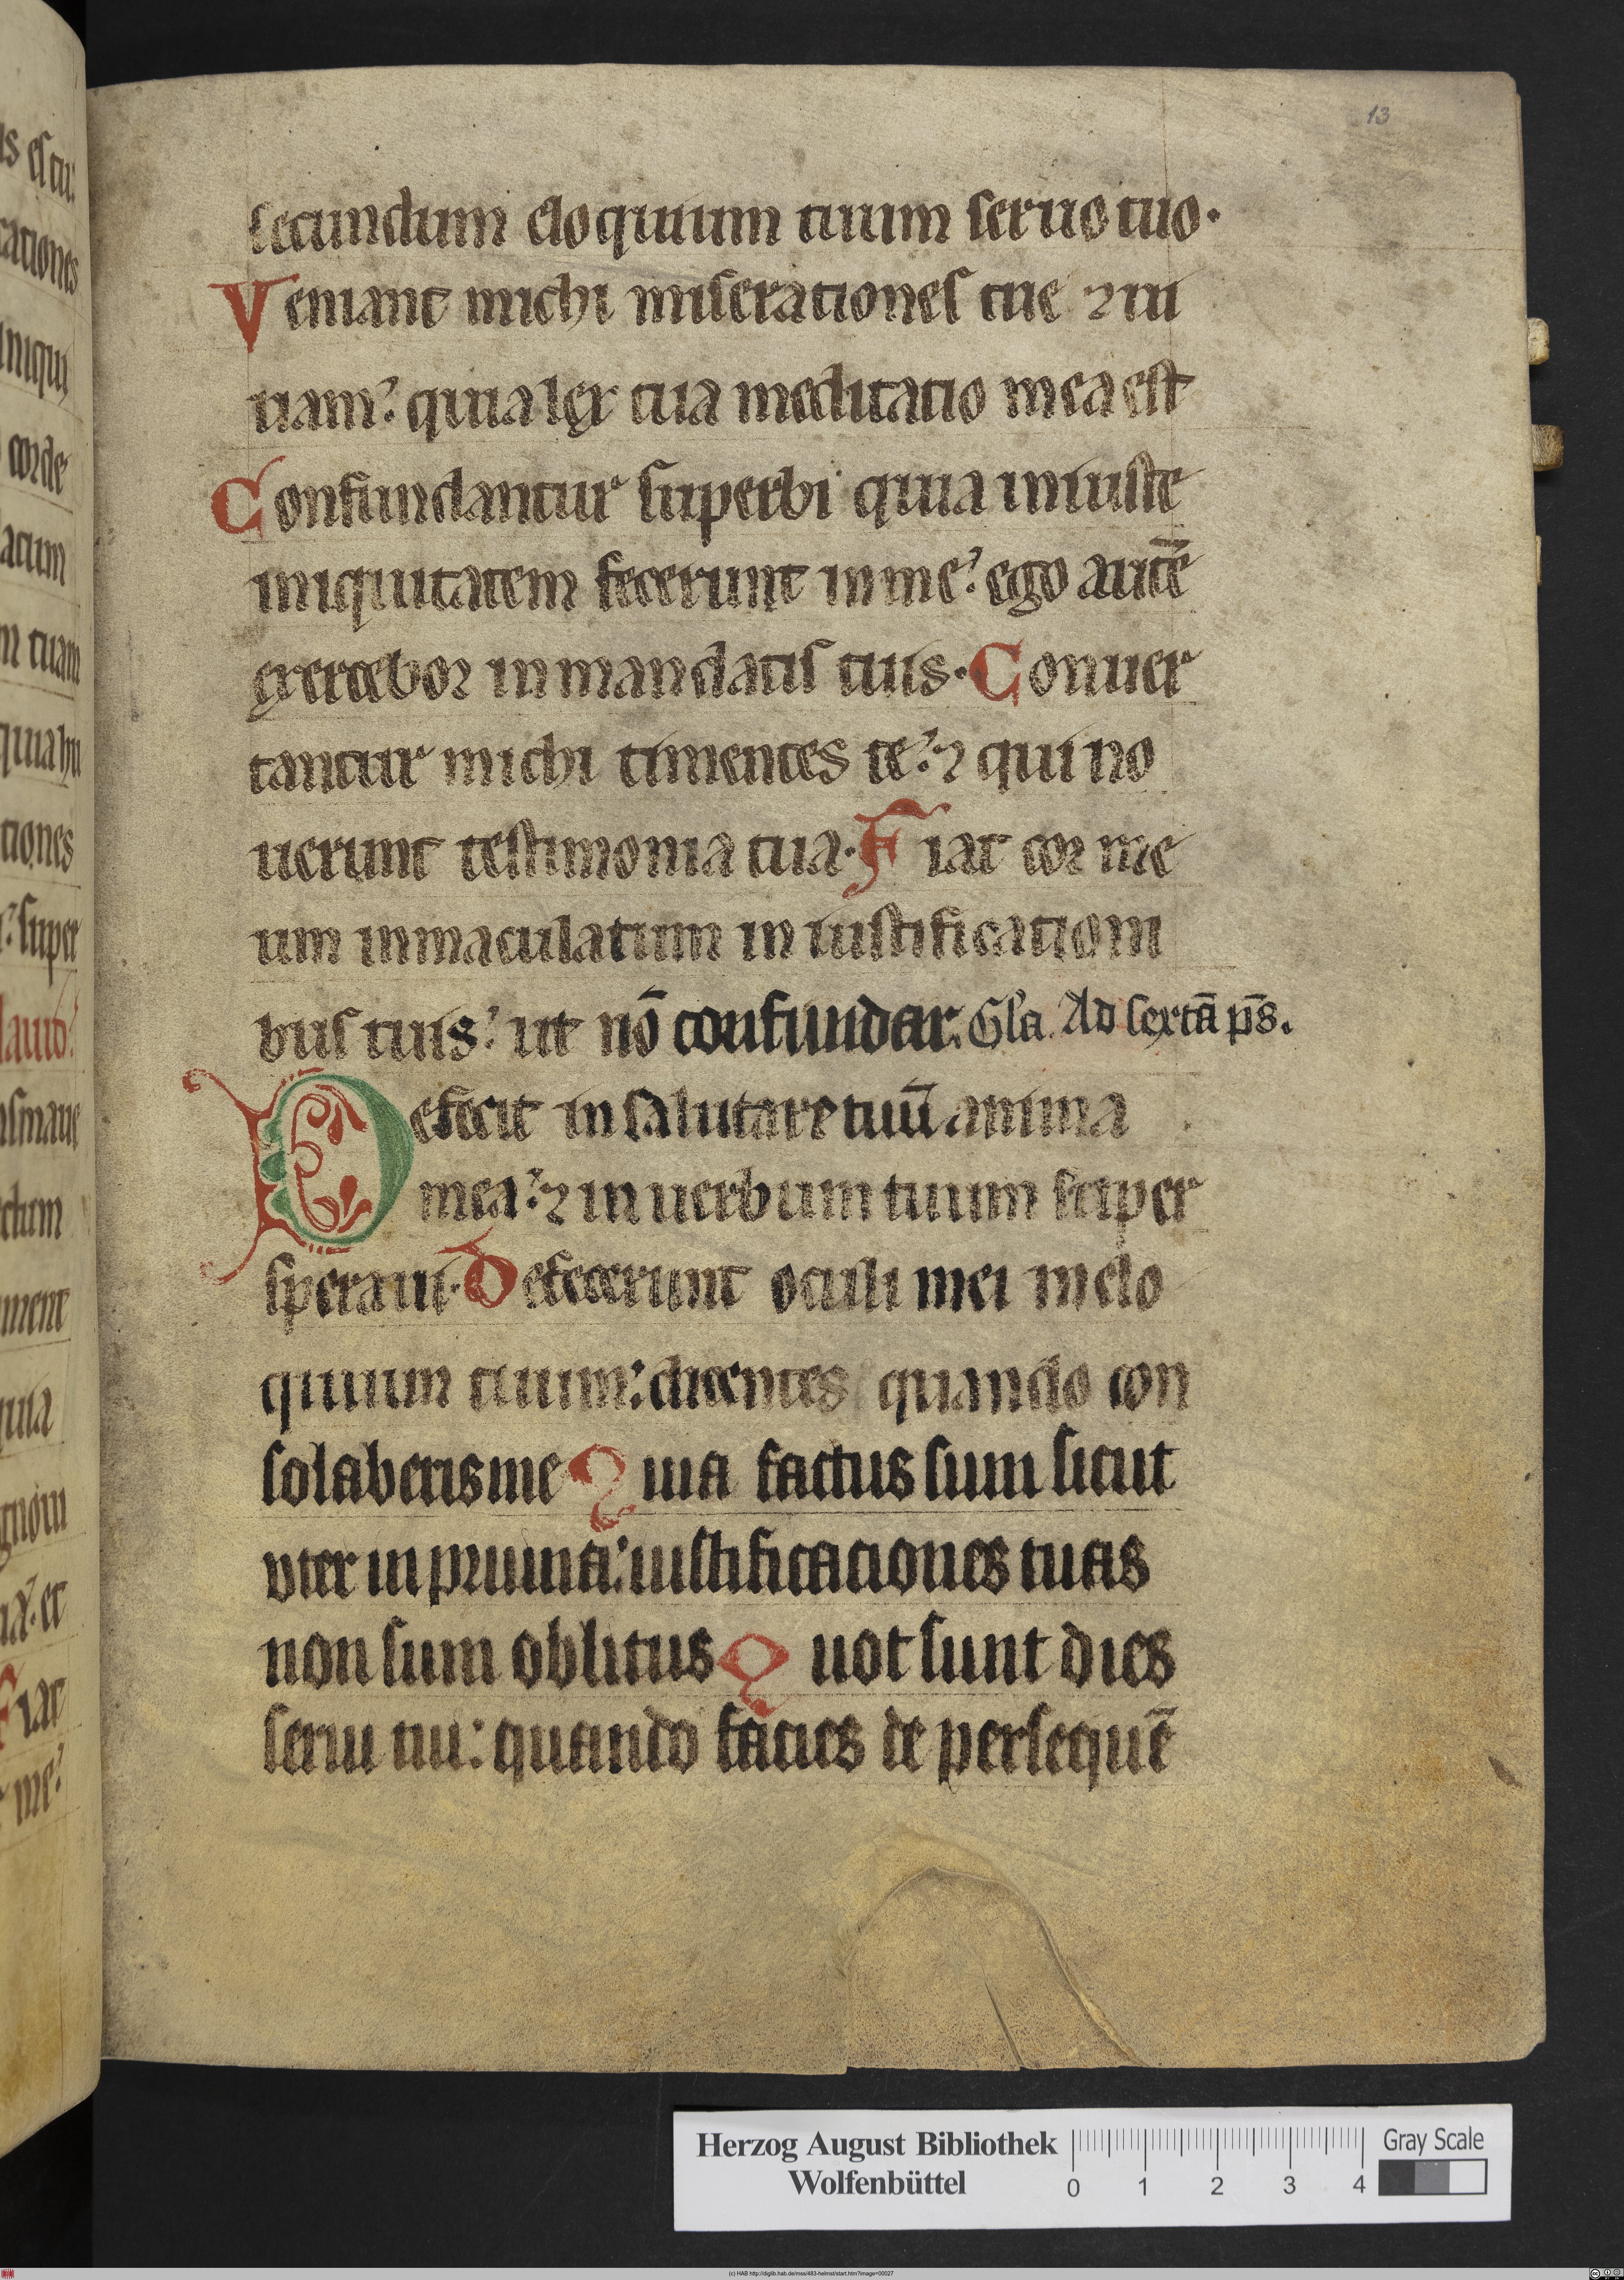 13
secundum eloquium tuum seruo tuo.
Veniant michi miserationes tue ⁊ ui
uam: quia lex tua meditatio mea est
Confundantur superbi quia iniuste
iniquitatem fecerunt in me: ego autē
exercebor in mandatis tuis. Conuer
tantur michi timentes te: ⁊ qui no
uerunt testimonia tua. Fiat cor me
um inmaculatum in iustificationi
bus tuis: ut nō confundar. Gła. Ad sextā p̄s.
Defecit in salutare tuū anima
mea: ⁊ in uerbum tuum super
speraui. Defecerunt oculi mei in elo
quium tuum: dicentes quando con
solaberis me Quia factus sum sicut
vter in pruina: iustificaciones tuas
non sum oblitus Quot sunt dies
serui tui: quando facies de persequē
Herzog August Bibliothek
Wolfenbüttel
0 1 2 3 4
Gray Scale
(c) HAB http://diglib.hab.de/mss/483-helmst/start.htm?image=00027